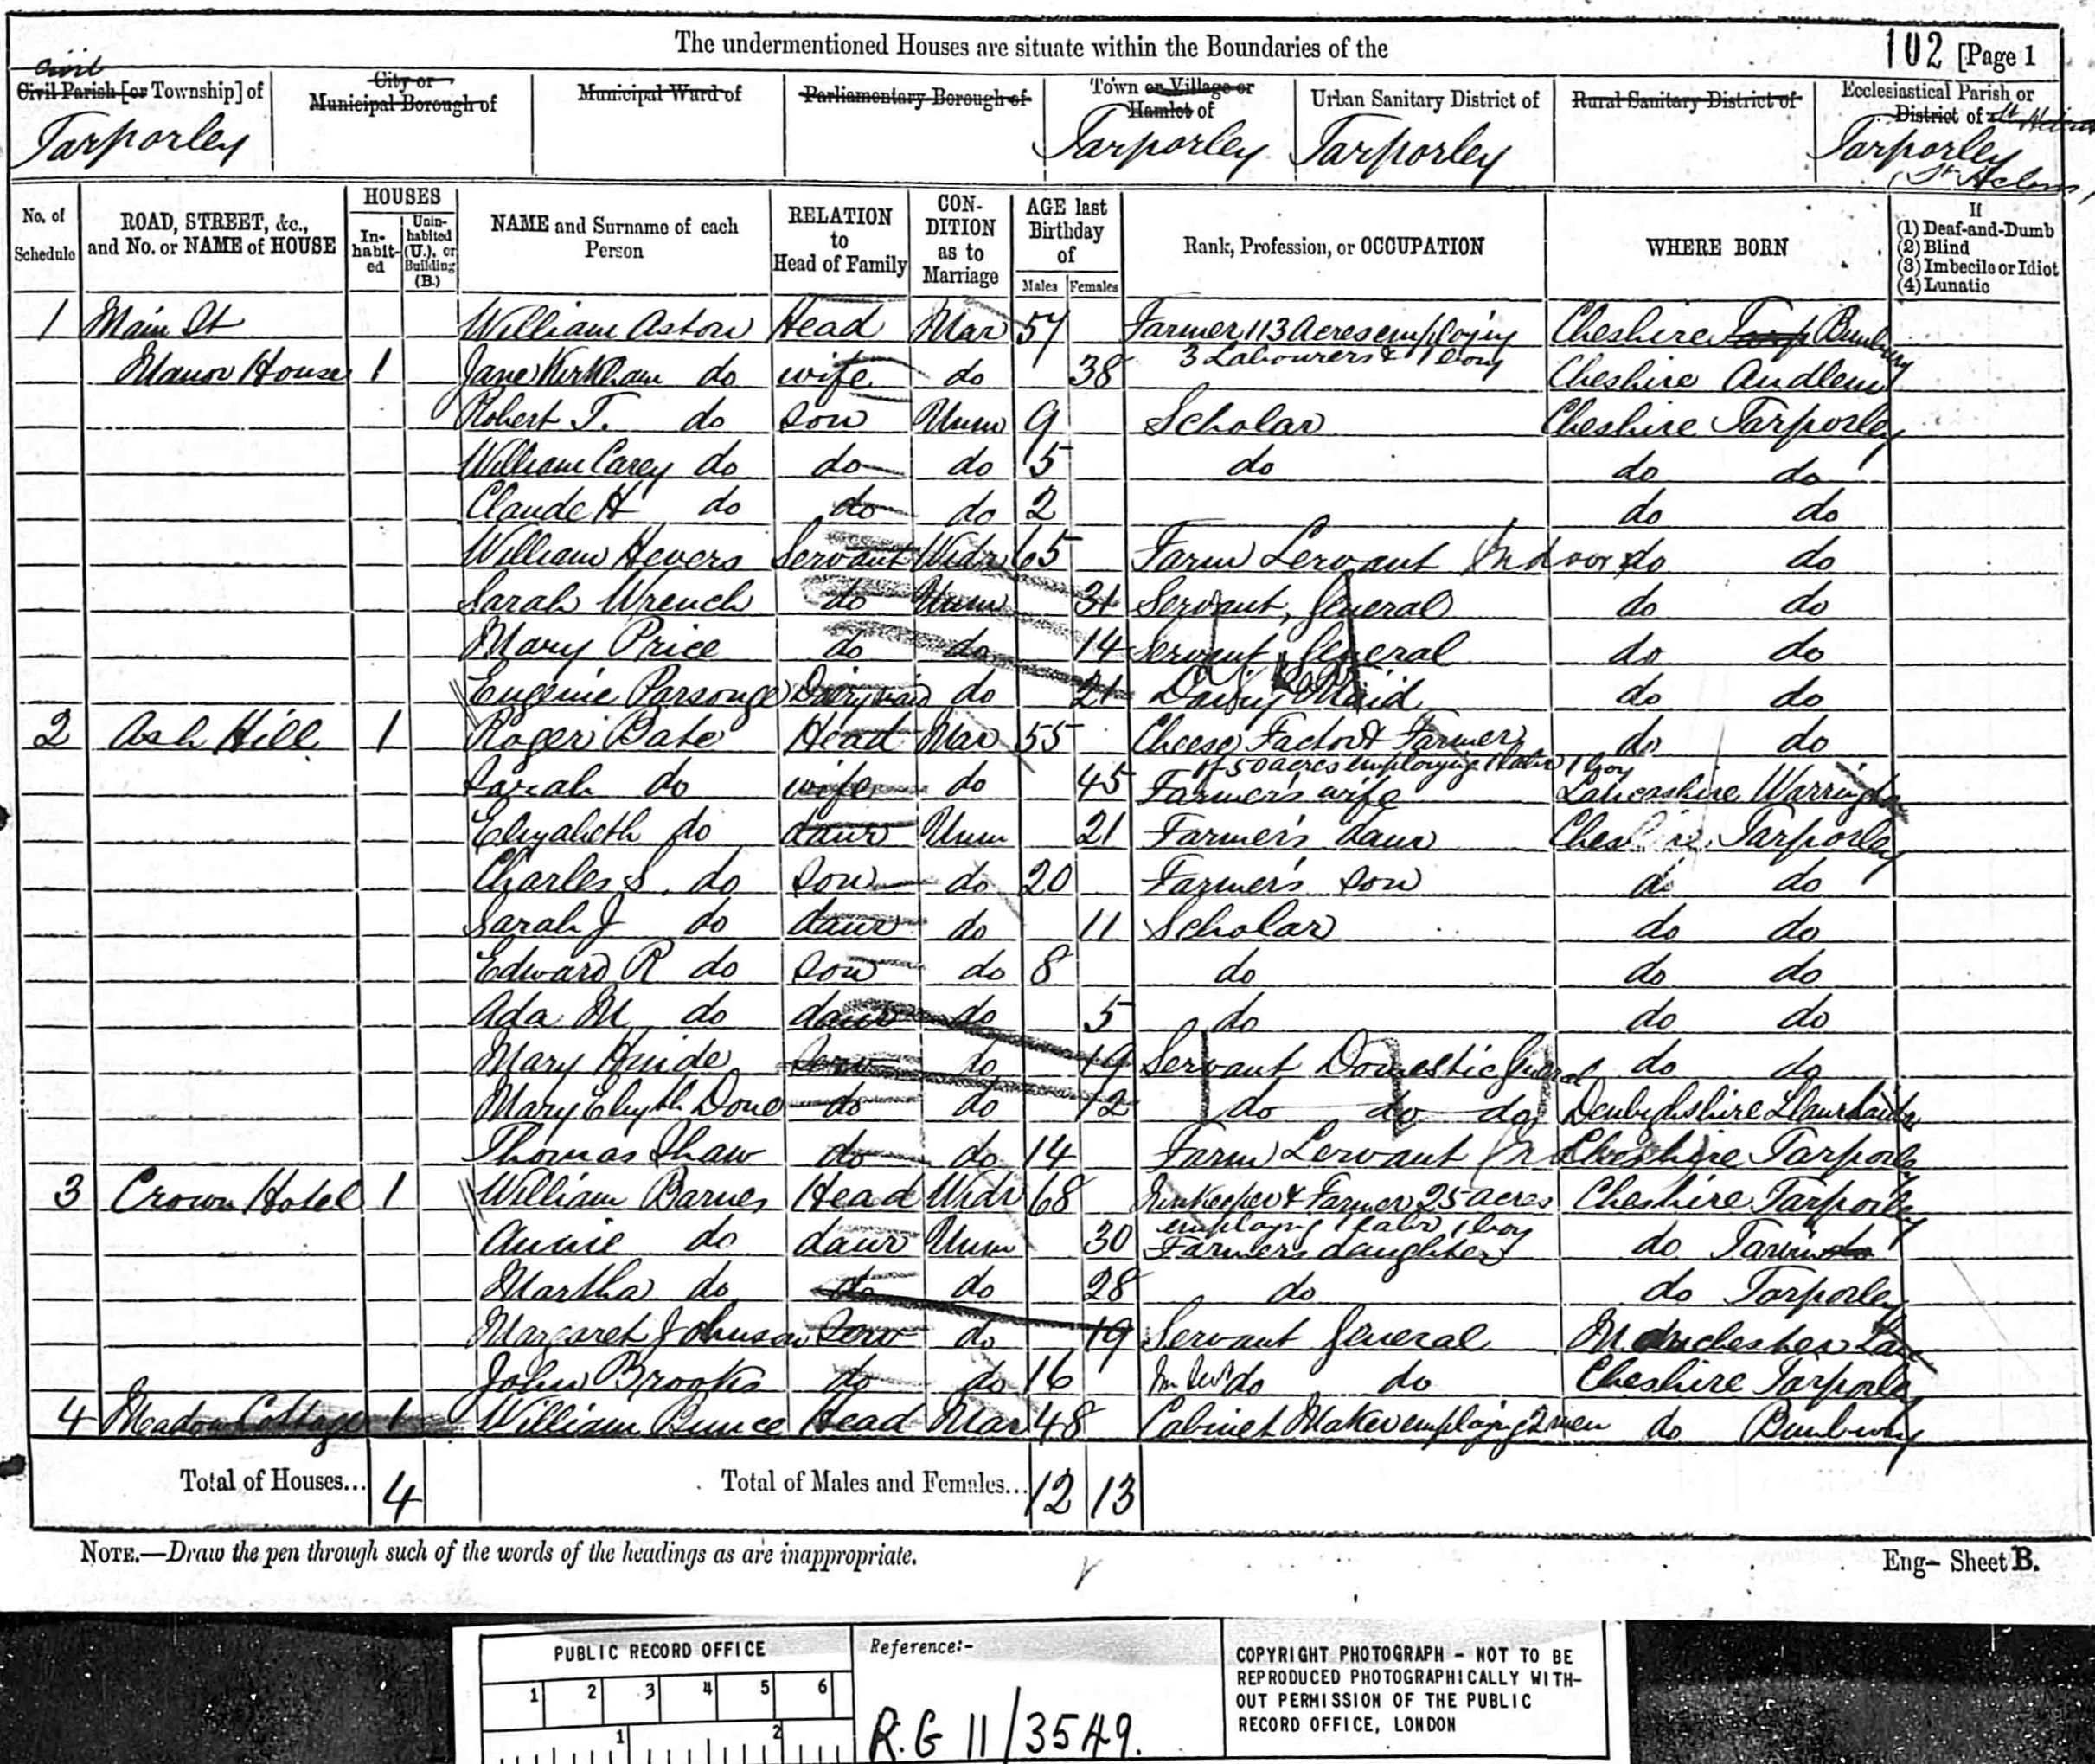 The undermentioned Houses are situate within the Boundaries of the
102 [Page 1
Civil
Civil Parish [or Township] of
City or Municipal Borough of
Municipal Ward of
Parliamentary Borough of
Town or Village or Hamlet of
Urban Sanitary District of
Rural Sanitary District of
Ecclesiastical Parish or District of
Tarporley
Tarporley
Tarporley
Tarporley
St Helens
No. of Schedule
ROAD, STREET, &c., and No. or NAME of HOUSE
HOUSES
Inhabited
Uninhabited (U.), or Building (B.)
NAME and Surname of each Person
RELATION to Head of Family
CONDITION as to Marriage
AGE last Birthday of
Males
Females
Rank, Profession, or OCCUPATION
WHERE BORN
If
(1) Deaf-and-Dumb
(2) Blind
(3) Imbecile or Idiot
(4) Lunatic
1 Main St William Aston Head Mar 57 Farmer 113 Acres employing Cheshire Bunbury
3 Labourers & 1 boy
Manor House 1 Jane Kirkham do wife do 38 Cheshire Audlem
Robert T. do son Unm 9 Scholar Cheshire Tarporley
William Carey do do do 5 do do do
Claude H do do do 2 do do
William Hevers Servant Widr 65 Farm Servant Indoor do do
Sarah Wrench do Unm 31 Servant, General do do
Mary Price do do 14 Servant General do do
Eugenie Parsonge Dairymaid do 21 Dairy Maid do do
2 Ash Hill 1 Roger Bate Head Mar 55 Cheese Factor & Farmer do do
of 50 acres employing 1 labr 1 boy
Sarah do wife do 45 Farmer's wife Lancashire Warrington
Elizabeth do daur Unm 21 Farmer's daur Cheshire Tarporley
Charles S. do son do 20 Farmer's son do do
Sarah J do daur do 11 Scholar do do
Edward R do son do 8 do do do
Ada M do daur do 5 do do do
Mary Hinde Serv do 19 Servant Domestic General do do
Mary Elizth Done do do 12 do do do Denbighshire
Thomas Shaw do do 14 Farm Servant In Cheshire Tarporley
3 Crown Hotel 1 William Barnes Head Widr 68 Innkeeper & Farmer 25 acres Cheshire Tarporley
employing 1 labr 1 boy
Annie do daur Unm 30 Farmer's daughter do
Martha do do do 28 do do Tarporley
Margaret Johnson Serv do 19 Servant General Manchester Lan
John Brooks do do 16 do do Cheshire Tarporley
4 Meadow Cottage 1 William Bunce Head Mar 48 Cabinet Maker employing 2 men do Bunbury
Total of Houses... 4 Total of Males and Females... 12 13
NOTE.—Draw the pen through such of the words of the headings as are inappropriate.
Eng- Sheet B.
PUBLIC RECORD OFFICE
1 2 3 4 5 6
1 2
Reference:-
R.G 11/3549.
COPYRIGHT PHOTOGRAPH - NOT TO BE
REPRODUCED PHOTOGRAPHICALLY WITH-
OUT PERMISSION OF THE PUBLIC
RECORD OFFICE, LONDON